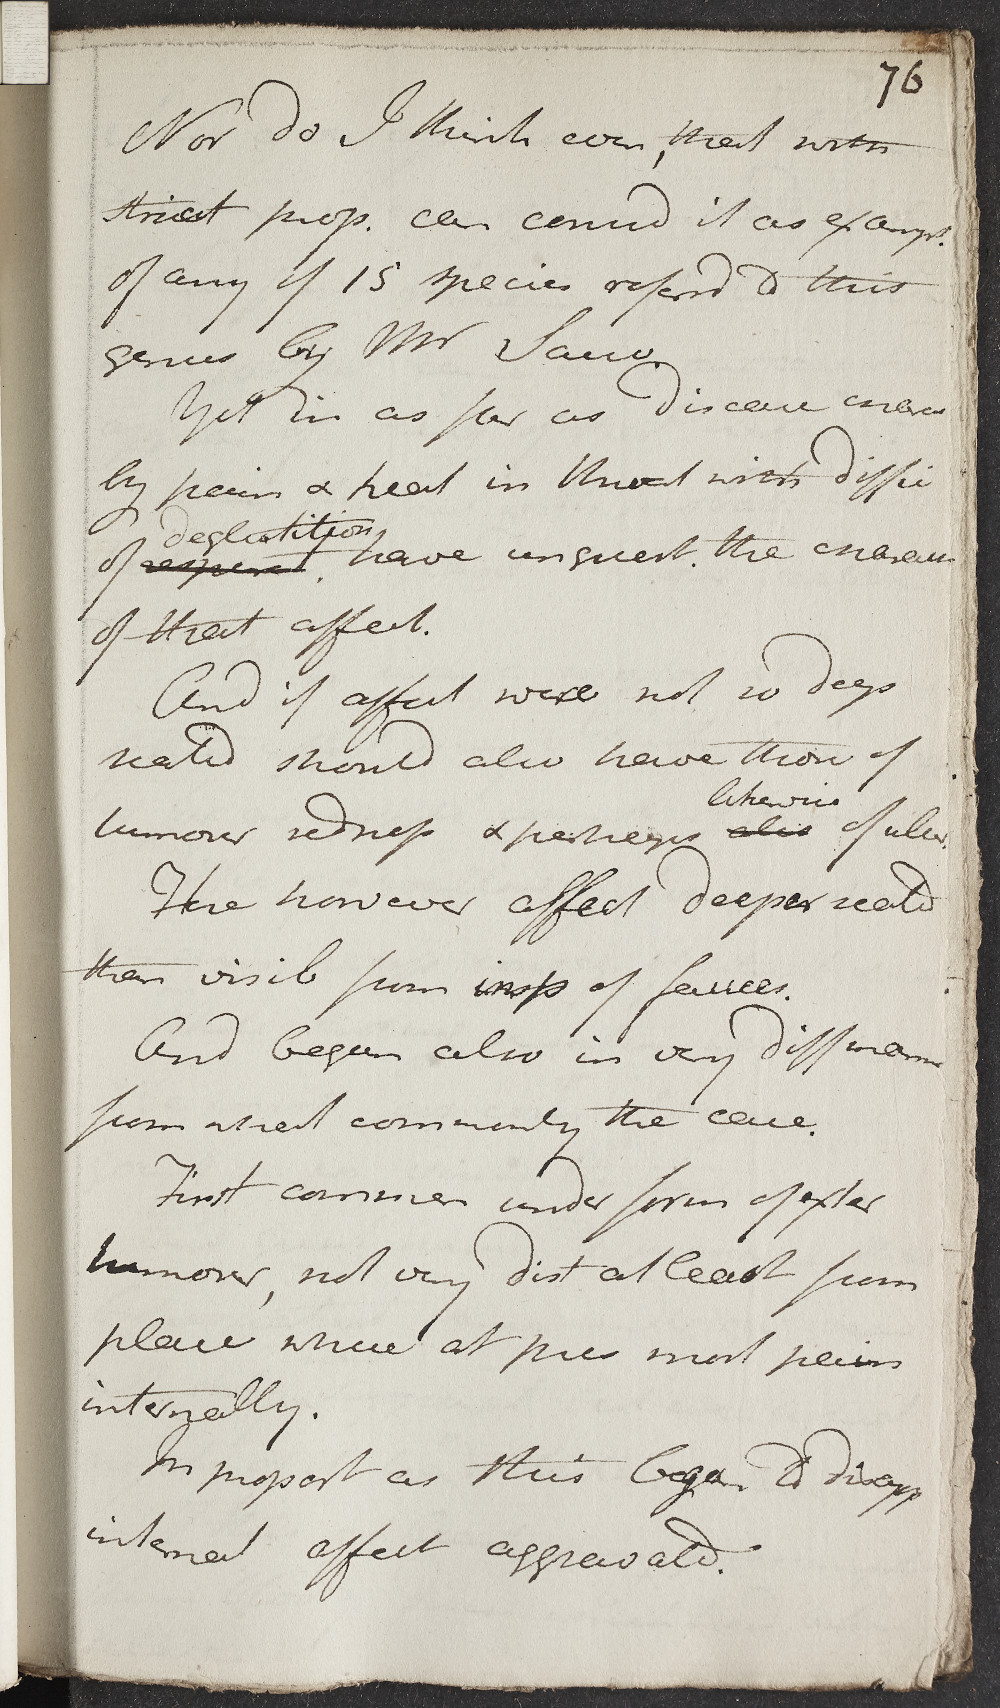 76
Nor do I think even, that with
strict prop. can consid it as exampl.
of any of 15 species referrd to this
genus by Mr Sauv.
Yet in as far as disease charac
by pain & heat in throat with diffi
deglutition
of respirat. have unquest. the charact
of that affect.
And if affect were not so deep
seated should also have those of
tumour redness & perhaps also of ulcer.
likewise
Here however affect deeper seated
than visib from insp of fauces.
And began also in very diff mann
from what commonly the case.
First commen under form of exter
tumour, not very dist at least from
place where at pres most pain
internally.
In proport as this began to disapp
internal affect aggravated.